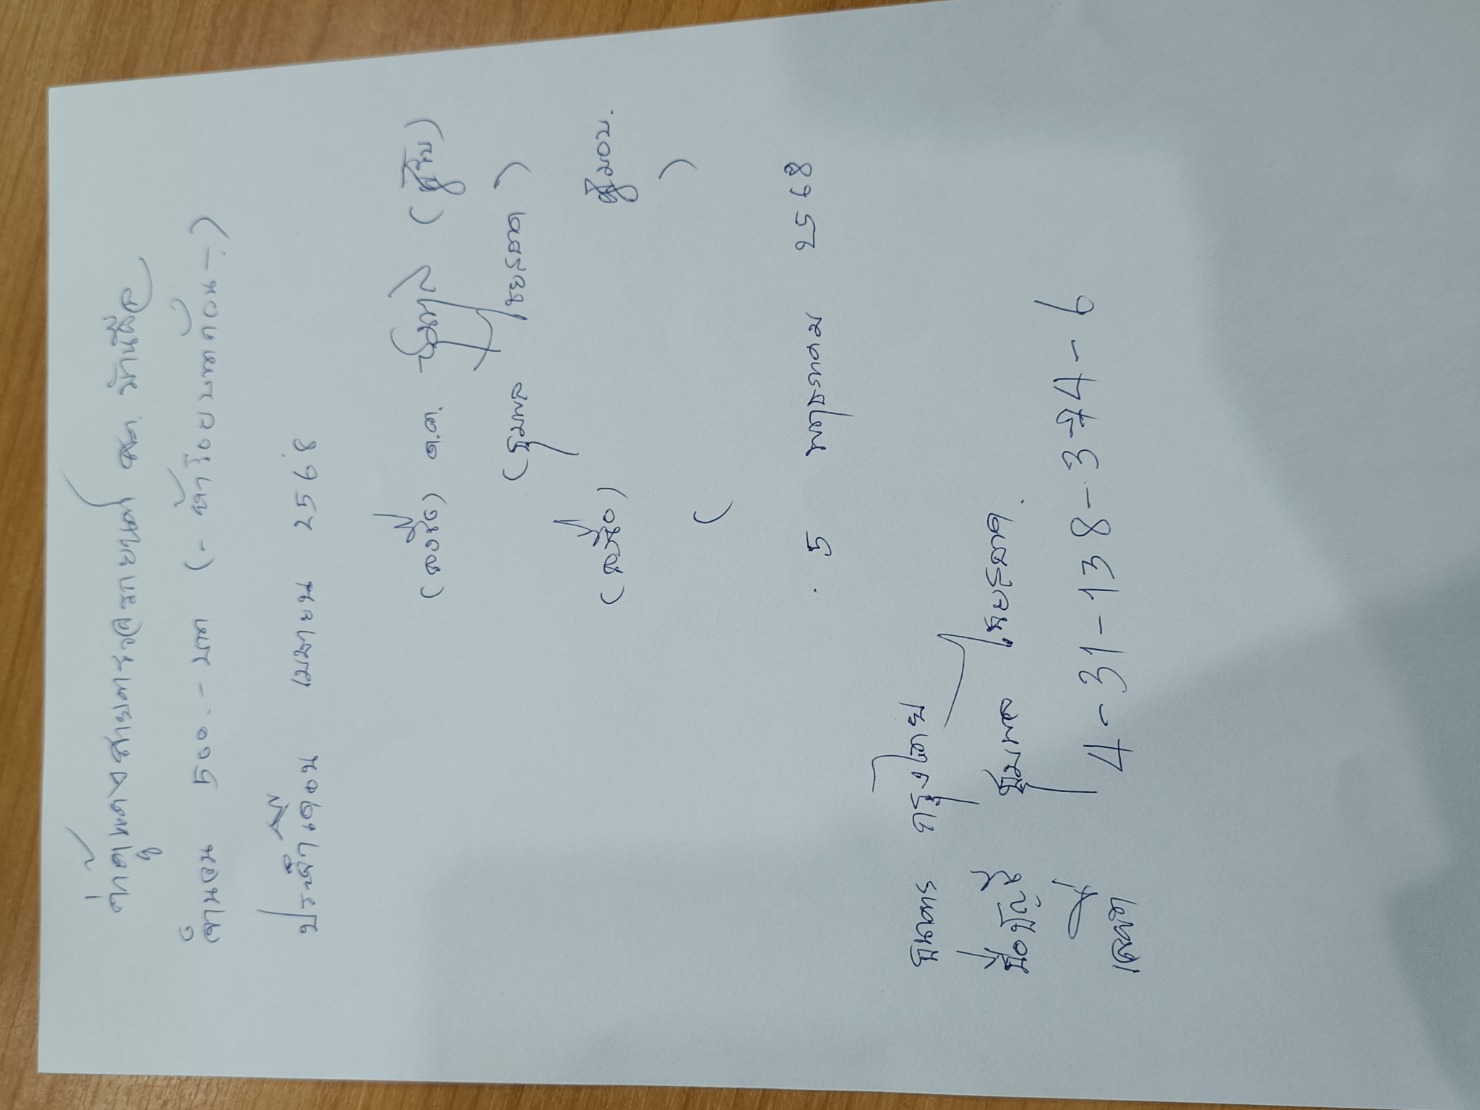 ค่าตู้แดงสายตรวจรถยนต์ สภ.
จำนวน 500.- บาท (- ห้าร้อยบาทถ้วน -)
ประจำเดือน เมษายน 2568
(ลงชื่อ) ด.ต. (ผู้รับ)
(ชุมพล ไชยราด)
(ลงชื่อ) ผู้มอบ.
( )
5 พฤษภาคม 2568
ธนาคาร กรุงไทย
ชื่อบัญชี ชุมพล ไชยราด.
เลขที่ 4-31-138-374-6